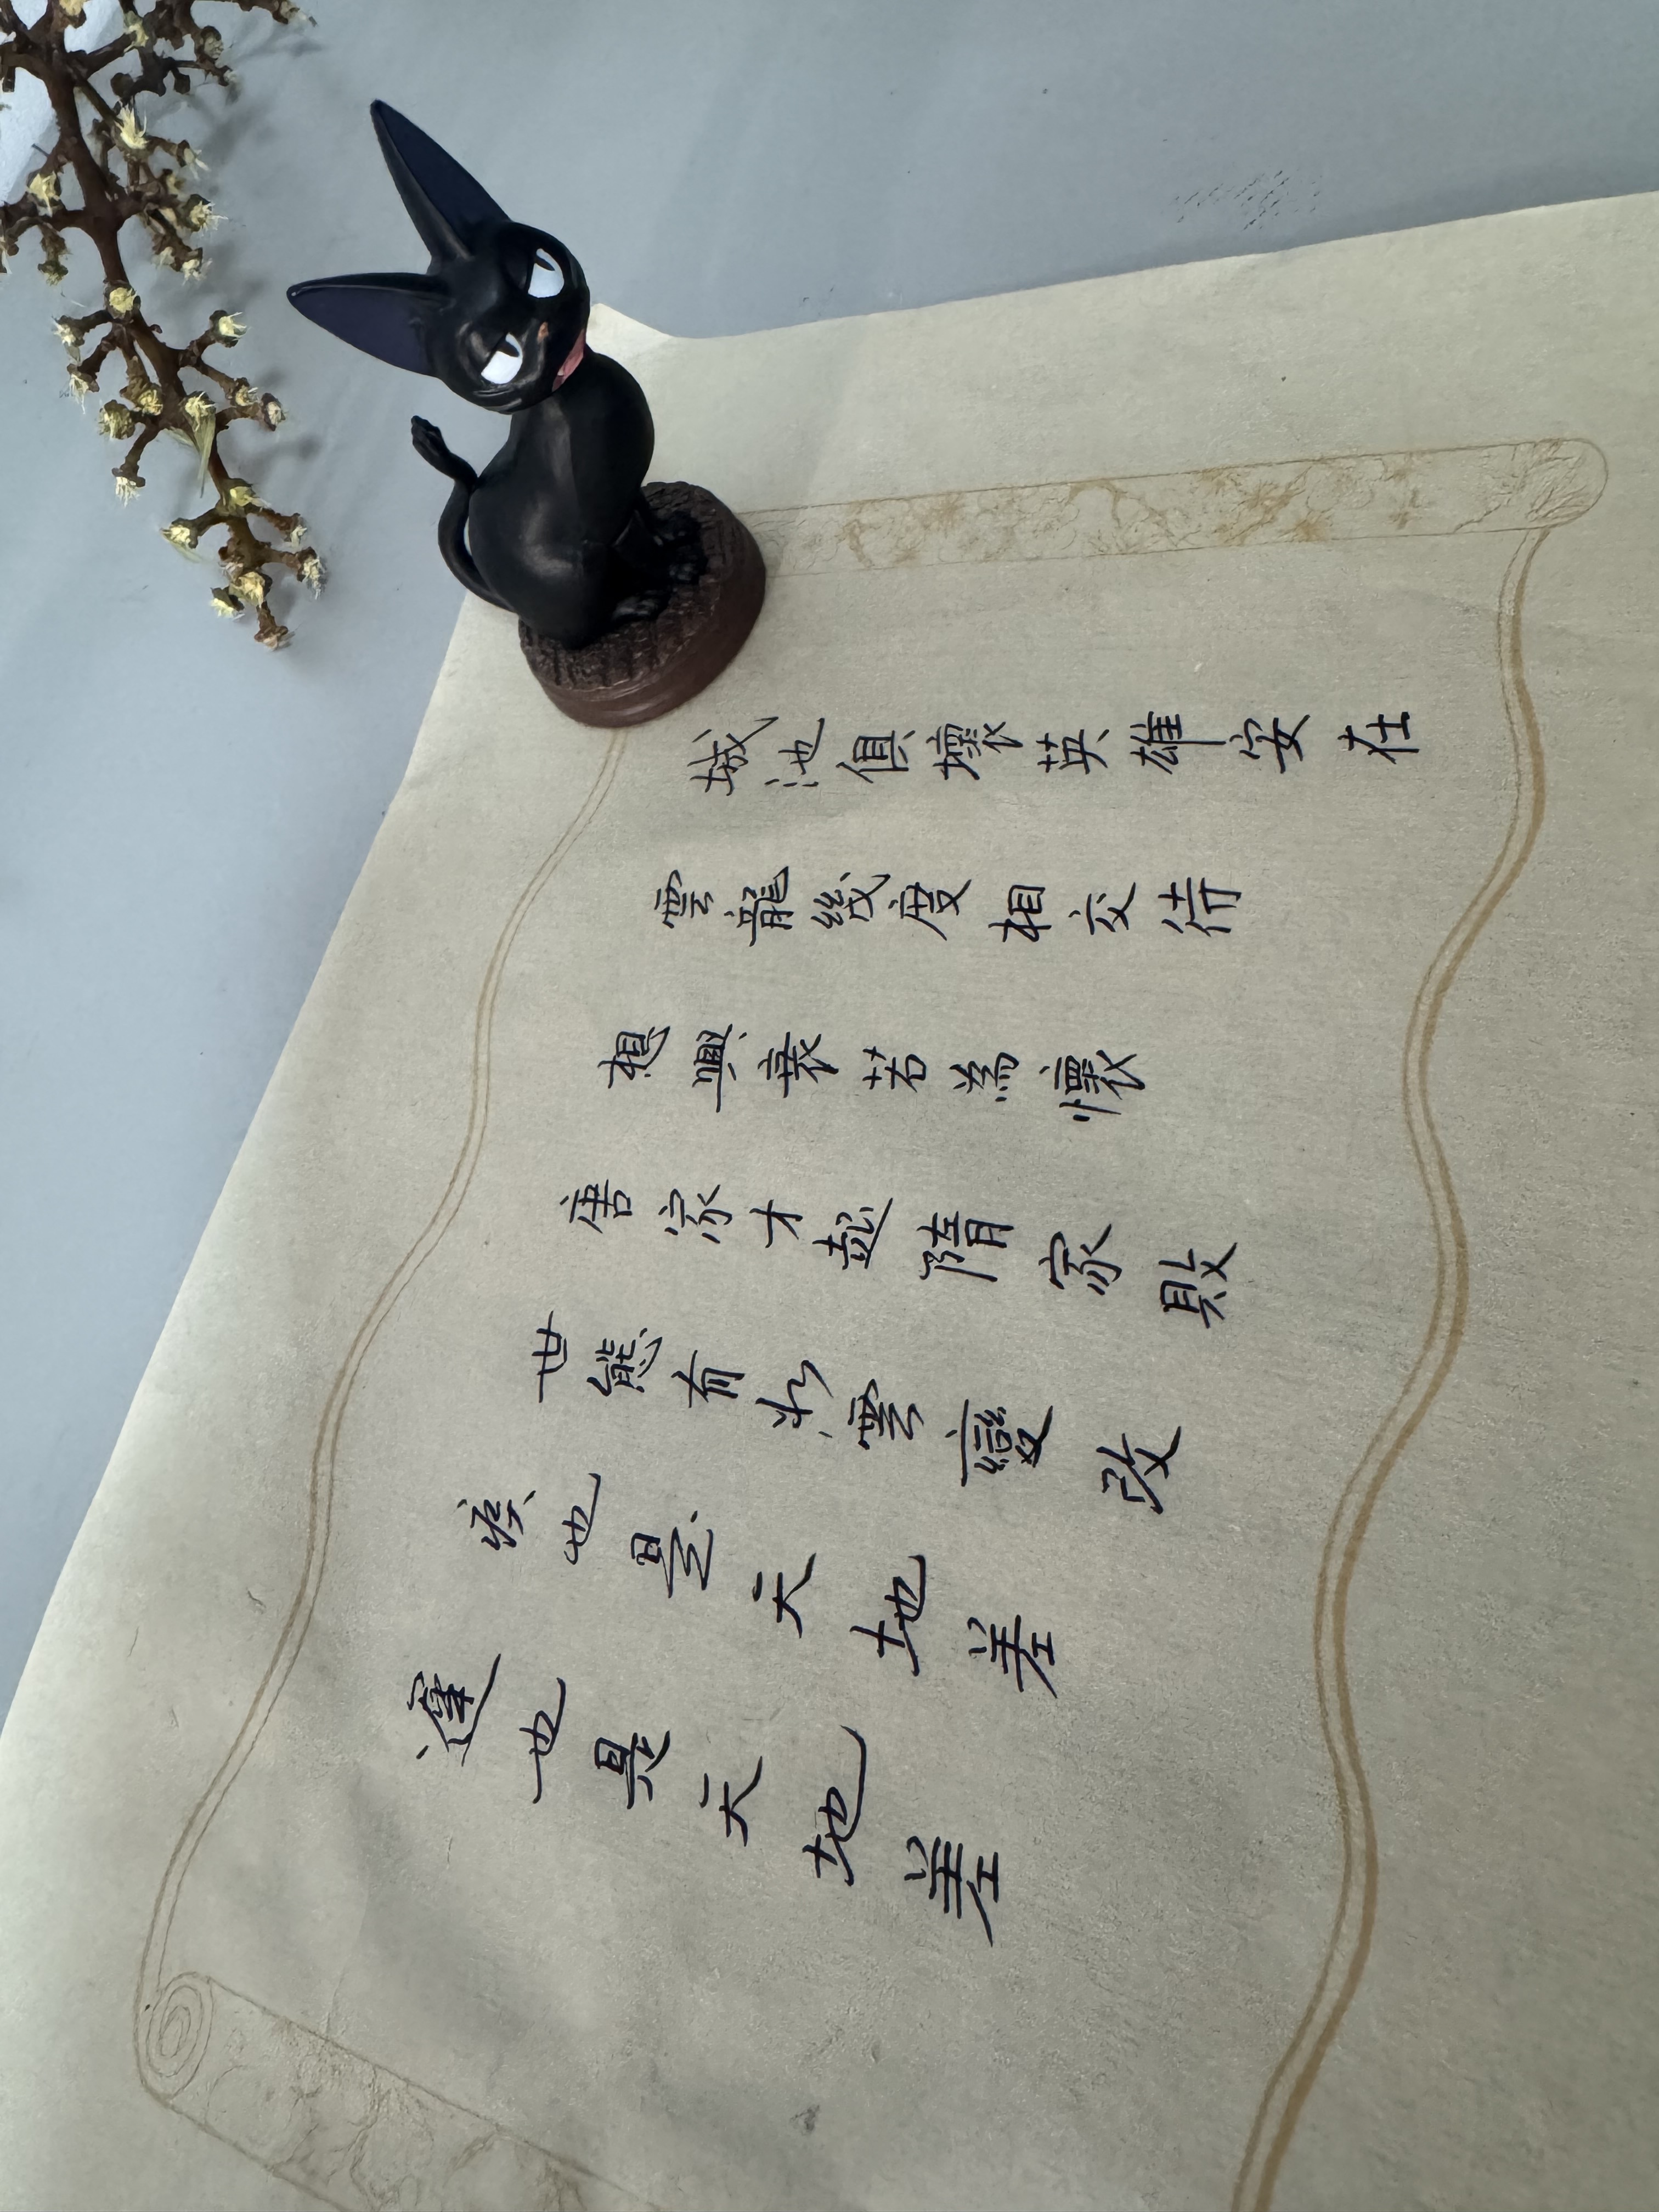 城池俱壞英雄安在
雲龍幾度相交待
想興衰若為懷
唐家才起隋家敗
世態有如雲變改
疾也是天地差
遲也是天地差